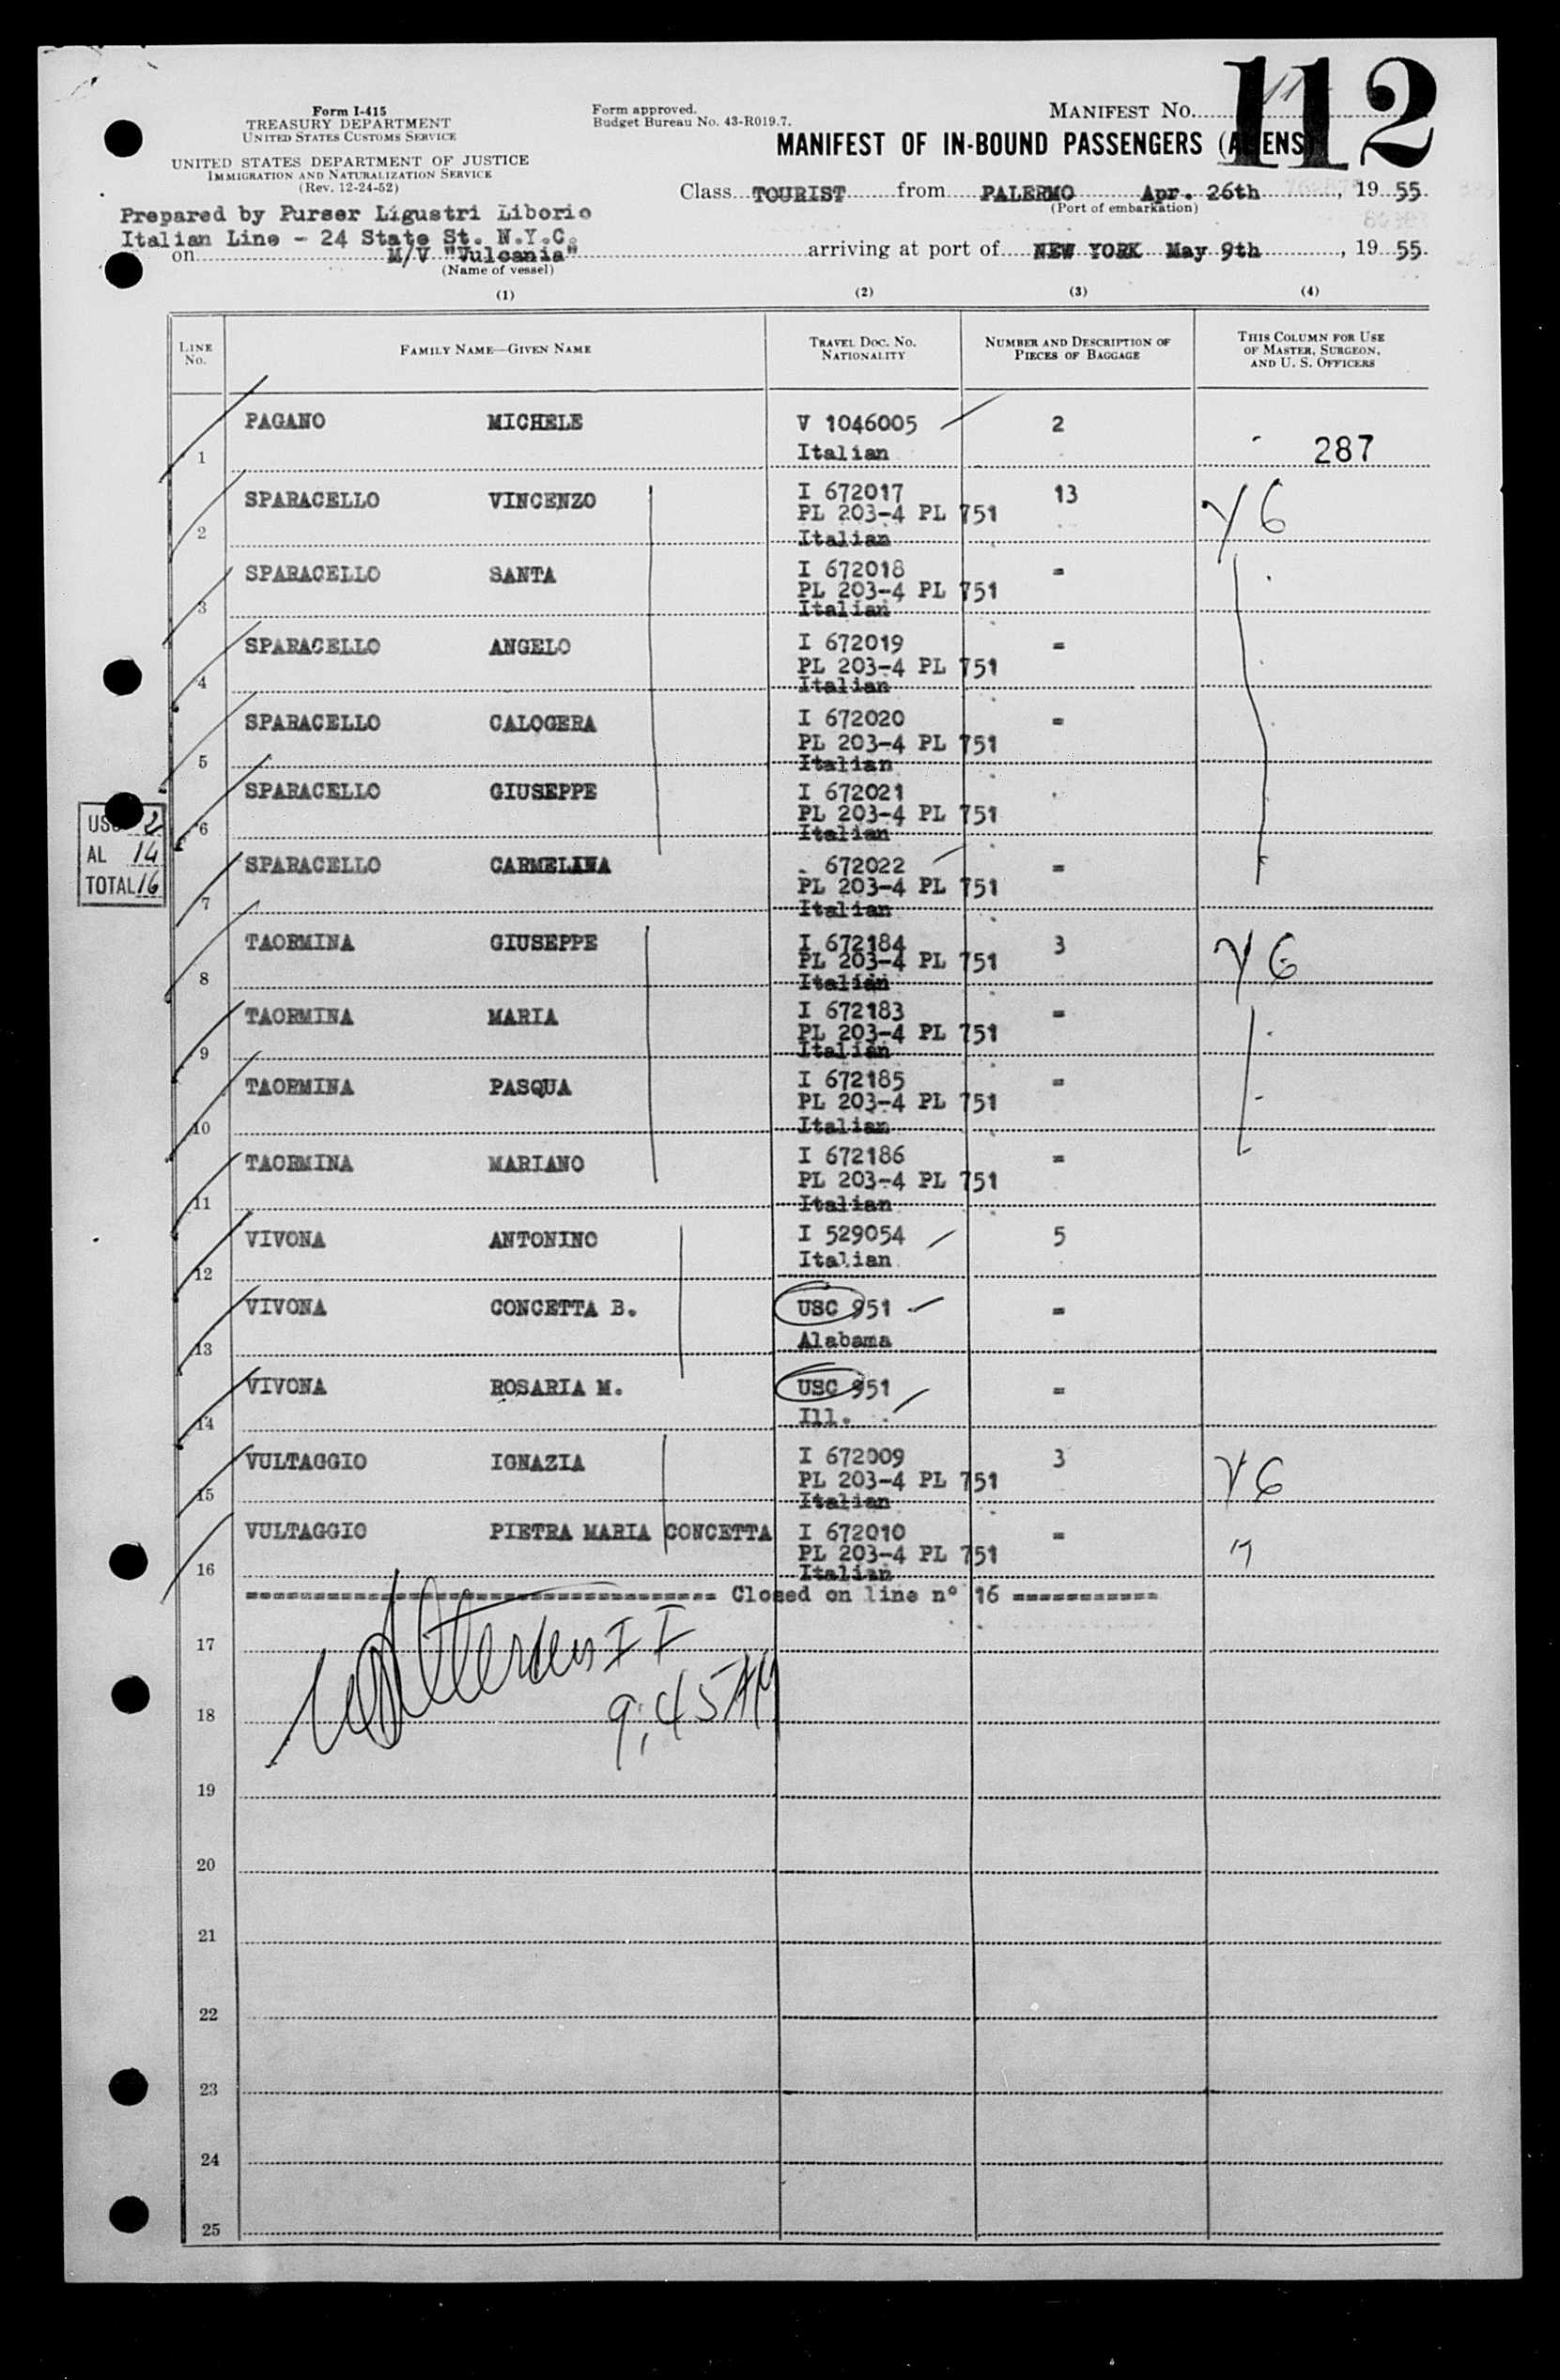 112
Form I-415
TREASURY DEPARTMENT
UNITED STATES CUSTOMS SERVICE
UNITED STATES DEPARTMENT OF JUSTICE
IMMIGRATION AND NATURALIZATION SERVICE
(Rev. 12-24-52)
Form approved.
Budget Bureau No. 43-R019.7.
MANIFEST NO.
MANIFEST OF IN-BOUND PASSENGERS (ALIENS)
Class TOURIST from PALERMO Apr. 26th, 19 55
(Port of embarkation)
Prepared by Purser Ligustri Liborio
Italian Line - 24 State St. N.Y.C.
on M/V "Vulcania" arriving at port of NEW YORK May 9th, 19 55
(Name of vessel)
(1) (2) (3) (4)
LINE No. FAMILY NAME—GIVEN NAME TRAVEL DOC. NO. NATIONALITY NUMBER AND DESCRIPTION OF PIECES OF BAGGAGE THIS COLUMN FOR USE OF MASTER, SURGEON, AND U. S. OFFICERS
1 PAGANO MICHELE V 1046005 2
Italian 287
2 SPARACELLO VINCENZO I 672017 13
PL 203-4 PL 751
Italian
3 SPARACELLO SANTA I 672018 =
PL 203-4 PL 751
Italian
4 SPARACELLO ANGELO I 672019 =
PL 203-4 PL 751
Italian
5 SPARACELLO CALOGERA I 672020 =
PL 203-4 PL 751
Italian
6 SPARACELLO GIUSEPPE I 672021
PL 203-4 PL 751
Italian
USC 2
AL 14
TOTAL 16
7 SPARACELLO CARMELINA 672022 =
PL 203-4 PL 751
Italian
8 TAORMINA GIUSEPPE I 672184 3
PL 203-4 PL 751
Italian
9 TAORMINA MARIA I 672183 =
PL 203-4 PL 751
Italian
10 TAORMINA PASQUA I 672185 =
PL 203-4 PL 751
Italian
11 TAORMINA MARIANO I 672186 =
PL 203-4 PL 751
Italian
12 VIVONA ANTONINO I 529054 5
Italian
13 VIVONA CONCETTA B. USC 951 =
Alabama
14 VIVONA ROSARIA M. USC 951 =
Ill.
15 VULTAGGIO IGNAZIA I 672009 3
PL 203-4 PL 751
Italian
16 VULTAGGIO PIETRA MARIA CONCETTA I 672010 =
PL 203-4 PL 751
Italian
=================================== Closed on line n° 16 ===========
17
18 9:45 AM
19
20
21
22
23
24
25